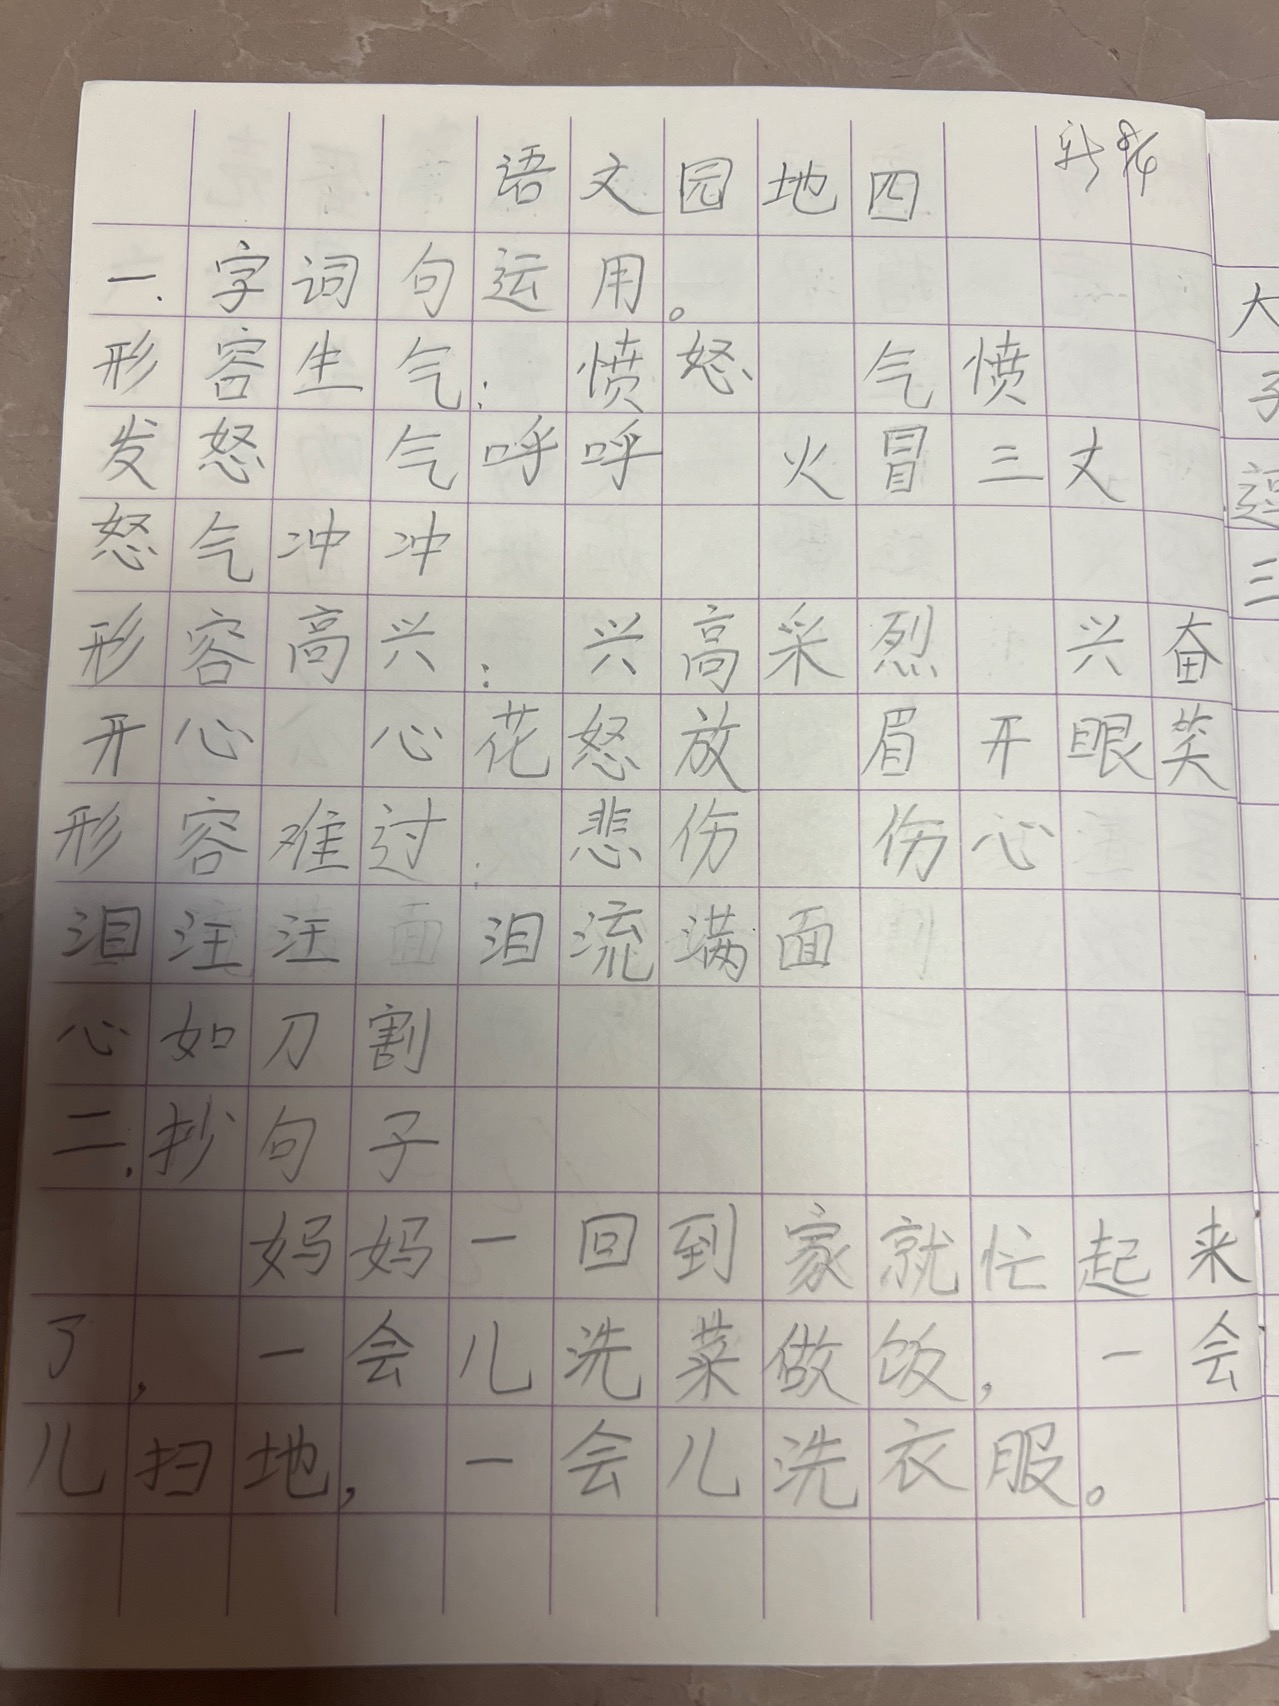 语文园地四
一.字词句运用。
形容生气: 愤怒 气愤
发怒 气呼呼 火冒三丈
怒气冲冲
形容高兴: 兴高采烈 兴奋
开心 心花怒放 眉开眼笑
形容难过: 悲伤 伤心
泪汪汪 泪流满面
心如刀割
二.抄句子
妈妈一回到家就忙起来
了, 一会儿洗菜做饭, 一会
儿扫地, 一会儿洗衣服。
大
子
三